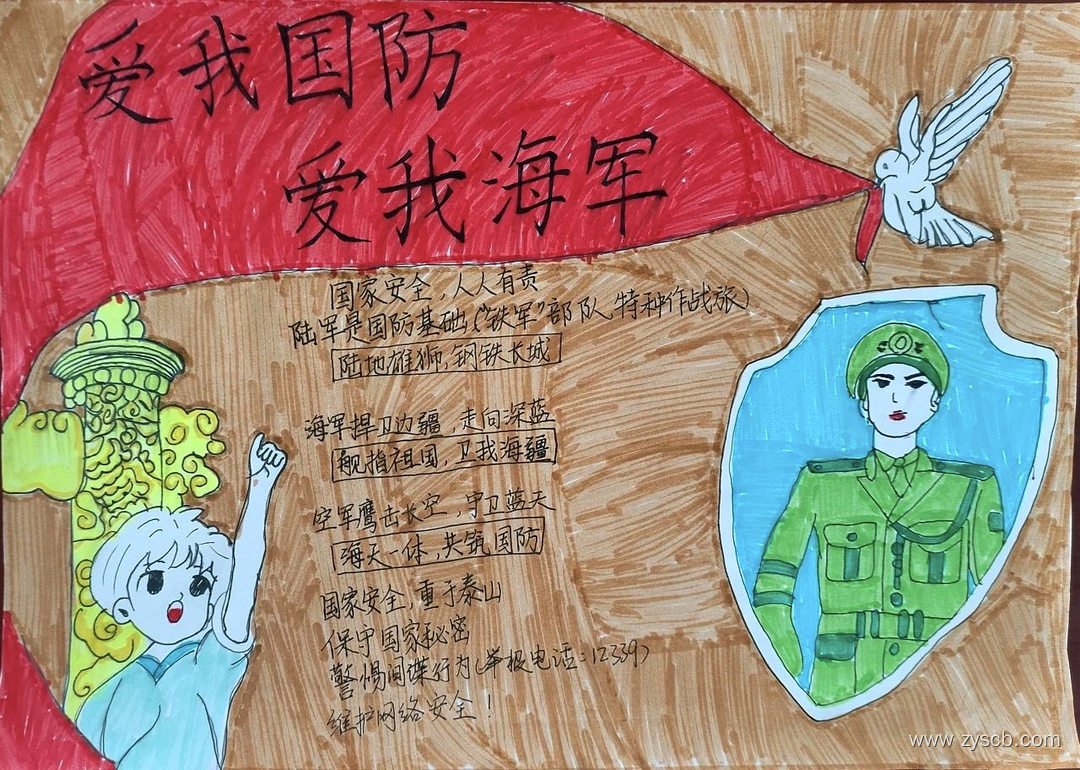 爱我国防
爱我海军
国家安全,人人有责
陆军是国防基础,("铁军"部队,特种作战旅)
陆地雄狮,钢铁长城
海军捍卫边疆,走向深蓝
舰指祖国,卫我海疆
空军鹰击长空,守卫蓝天
海天一体,共筑国防
国家安全,重于泰山
保守国家秘密
警惕间谍行为(举报电话:12339)
维护网络安全!
www.zyscb.com